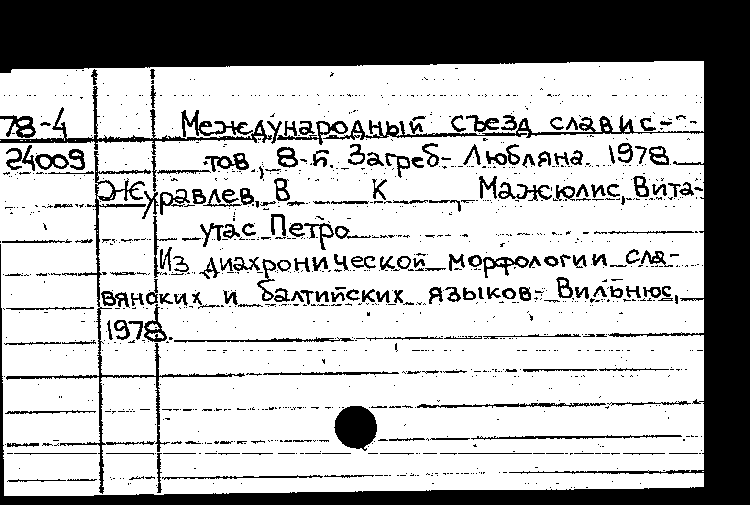 78-4 Международный съезд славис-
24009 тов, 8-й. Загреб-Любляна. 1978.
Журавлев, В К , Мажюлис, Вита-
утас Петро
Из диахронической морфологии сла-
вянских и балтийских языков.- Вильнюс,
1978.